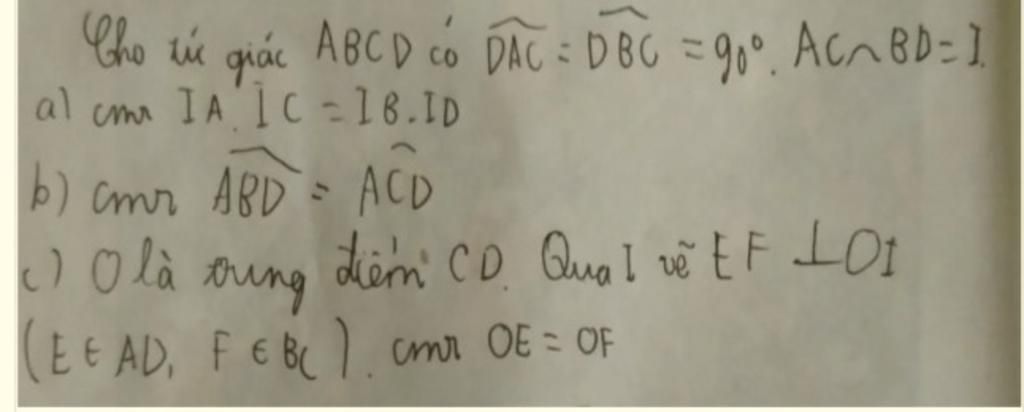 Cho tứ giác ABCD có \widehat{DAC} = \widehat{DBC} = 90°. AC∩BD=I.
a) cmr IA.IC = IB.ID
b) cmr \widehat{ABD} = \widehat{ACD}
c) O là trung điểm CD. Qua I vẽ EF ⊥OI
(E ∈ AD, F ∈ BC). cmr OE = OF